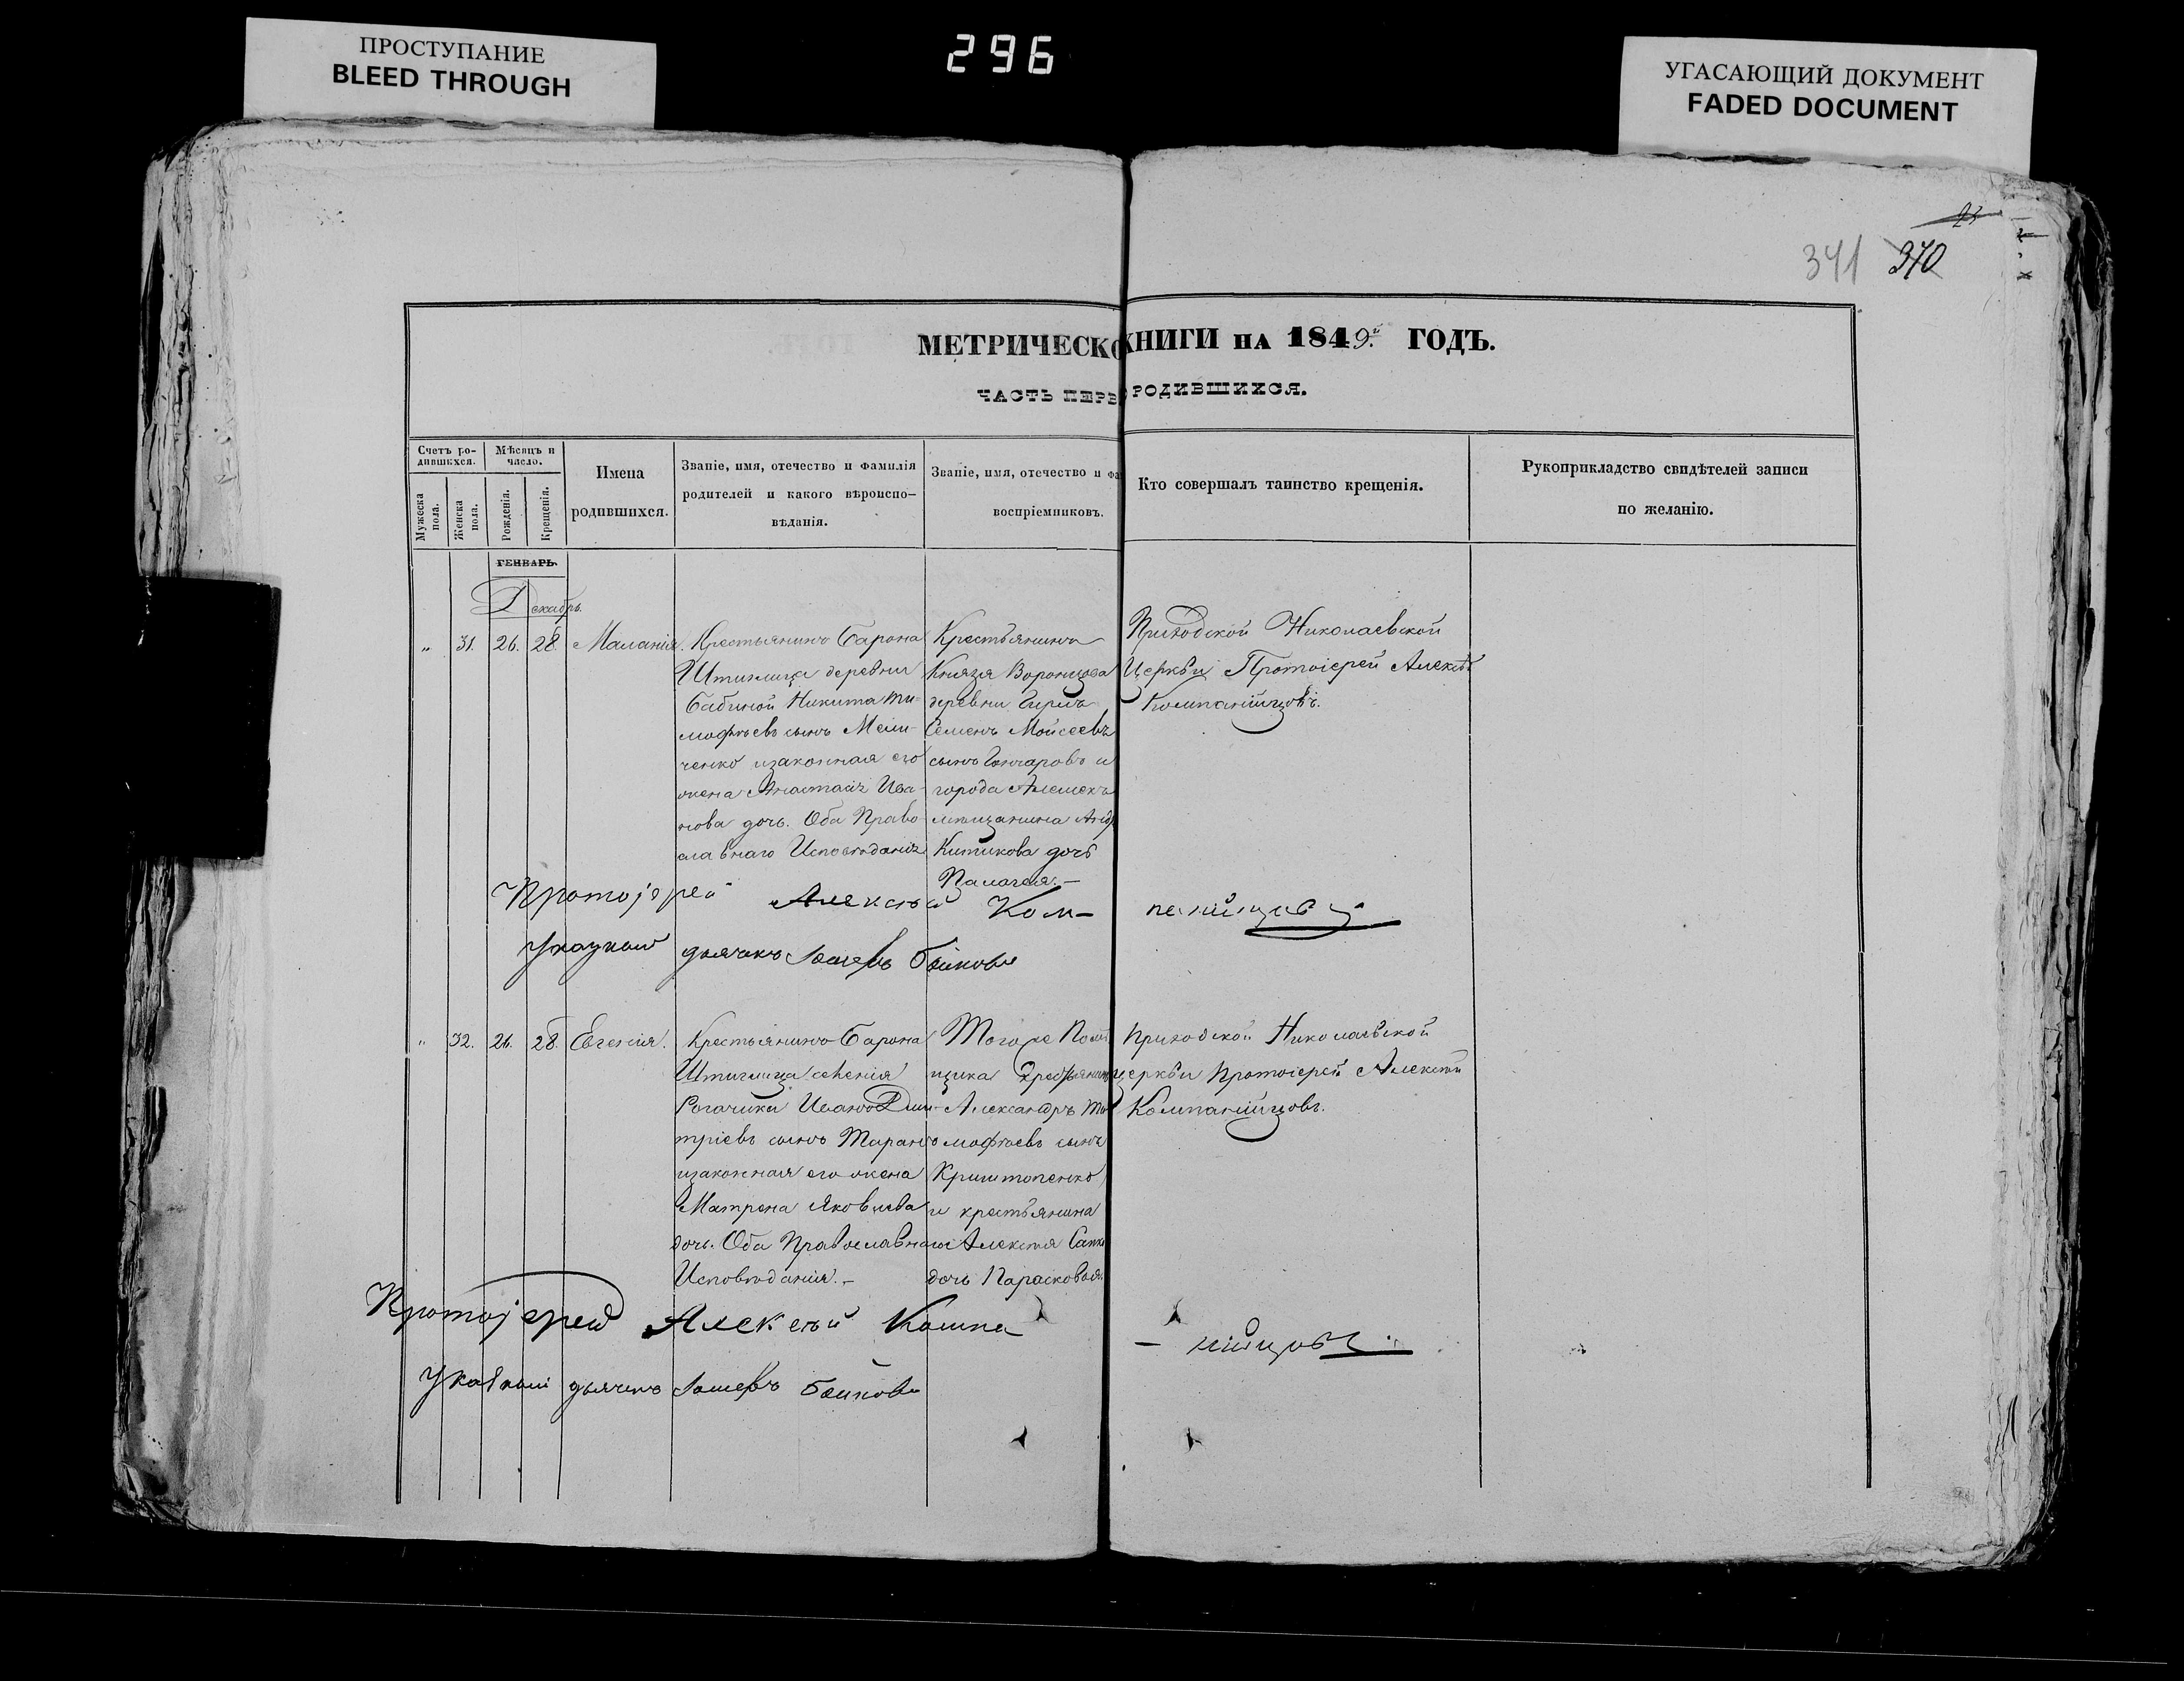 ПРОСТУПАНИЕ
BLEED THROUGH
296
УГАСАЮЩИЙ ДОКУМЕНТ
FADED DOCUMENT
23
341 340
МЕТРИЧЕСКО КНИГИ НА 1849.й ГОДЪ.
ЧАСТЬ ПЕРВ РОДИВШИХСЯ.
Счетъ ро-
дившихся.
Мужеска пола.
Женска пола.
Мѣсяцъ и
число.
Рожденія.
Крещенія.
Имена
родившихся.
Званіе, имя, отечество и фамилія
родителей и какого вѣроиспо-
вѣданія.
Званіе, имя, отечество и фа
воспріемниковъ.
Кто совершалъ таинство крещенія.
Рукоприкладство свидѣтелей записи
по желанію.
ГЕНВАРЬ.
Декабрь.
„ 31. 26. 28. Маланія.
Крестьянинъ Барона
Штиглица деревни
Бабиной Никита Ти-
мофѣевъ сынъ
изаконная его
жена Анастасія Ива-
нова дочь. Оба Право-
славнаго Исповѣданія
Крестьянинъ
Князя Воронцова
деревни
Семенъ Мойсеевъ
сынъ Гончаровъ и
города Алешекъ
мѣщанина
Китикова дочь
Палагея.-
Приходской Николаевской
Церкви Протоіерей Алексѣй
Компанійцовъ.
Протоjерей Алексѣй Ком- панійцовъ
Указный дьячекъ Бойковъ
„ 32. 26. 28. Евгенія.
Крестьянинъ Барона
Штиглица селенія
Рогачика Иванъ Дми-
тріевъ сынъ Таранъ
изаконная его жена
Матрена Яковлева
дочь. Оба Православнаго
Исповѣданія.-
Тогоже Помѣ
щика Крестьянинъ
Александръ Ти
мофѣевъ сынъ
Криштопенко
и крестьянина
Алексѣя
дочь Парасковья.
Приходской Николаевской
церкви Протоіерей Алексѣй
Компанійцовъ.
Протоjерей Алексѣй Компа
- нійцовъ
Указный дьячекъ Бойковъ